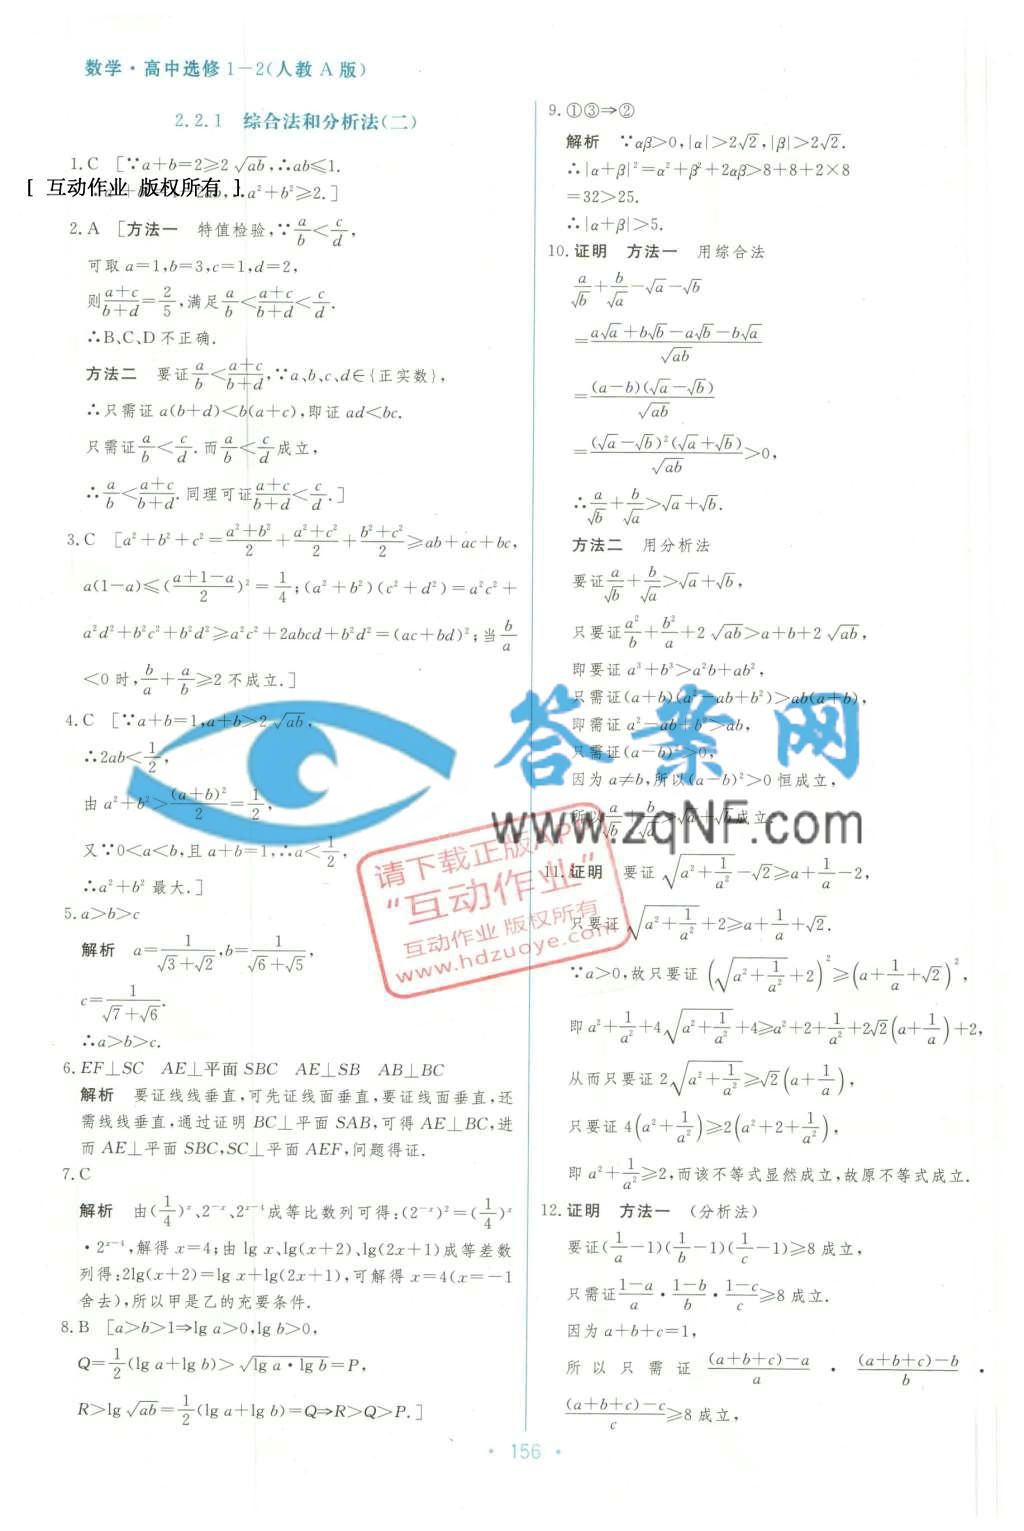 数学·高中选修1-2(人教A版)
2.2.1 综合法和分析法(二)
1.C [∵a+b=2≥2√ab,∴ab≤1.
[ 互动作业 版权所有 ]
∴a²+b²≥2.]
2.A [方法一 特值检验,∵a/b<c/d,
可取a=1,b=3,c=1,d=2,
则(a+c)/(b+d)=2/5,满足a/b<(a+c)/(b+d)<c/d.
∴B、C、D不正确.
方法二 要证a/b<(a+c)/(b+d),∵a、b、c、d∈{正实数},
∴只需证a(b+d)<b(a+c),即证ad<bc.
只需证a/b<c/d.而a/b<c/d成立,
∴a/b<(a+c)/(b+d).同理可证(a+c)/(b+d)<c/d.]
3.C [a²+b²+c²=(a²+b²)/2+(a²+c²)/2+(b²+c²)/2≥ab+ac+bc,
a(1-a)≤((a+1-a)/2)²=1/4;(a²+b²)(c²+d²)=a²c²+
a²d²+b²c²+b²d²≥a²c²+2abcd+b²d²=(ac+bd)²;当b/a
<0时,b/a+a/b≥2不成立.]
4.C [∵a+b=1,a+b>2√ab,
∴2ab<1/2,
由a²+b²>(a+b)²/2=1/2,
又∵0<a<b,且a+b=1,∴a<1/2,
∴a²+b²最大.]
5.a>b>c
解析 a=1/(√3+√2),b=1/(√6+√5),
c=1/(√7+√6).
∴a>b>c.
6.EF⊥SC AE⊥平面SBC AE⊥SB AB⊥BC
解析 要证线线垂直,可先证线面垂直,要证线面垂直,还
需线线垂直,通过证明BC⊥平面SAB,可得AE⊥BC,进
而AE⊥平面SBC,SC⊥平面AEF,问题得证.
7.C
解析 由(1/4)ˣ、2⁻ˣ、2ˣ⁻⁴成等比数列可得:(2⁻ˣ)²=(1/4)ˣ
·2ˣ⁻⁴,解得x=4;由lg x、lg(x+2)、lg(2x+1)成等差数
列得:2lg(x+2)=lg x+lg(2x+1),可解得x=4(x=-1
舍去),所以甲是乙的充要条件.
8.B [a>b>1⇒lg a>0,lg b>0,
Q=1/2(lg a+lg b)>√(lg a·lg b)=P,
R>lg√ab=1/2(lg a+lg b)=Q⇒R>Q>P.]
9.①③⇒②
解析 ∵αβ>0,|α|>2√2,|β|>2√2.
∴|α+β|²=α²+β²+2αβ>8+8+2×8
=32>25.
∴|α+β|>5.
10.证明 方法一 用综合法
a/√b+b/√a-√a-√b
=(a√a+b√b-a√b-b√a)/√ab
=(a-b)(√a-√b)/√ab
=(√a-√b)²(√a+√b)/√ab>0,
∴a/√b+b/√a>√a+√b.
方法二 用分析法
要证a/√b+b/√a>√a+√b,
只要证a²/b+b²/a+2√ab>a+b+2√ab,
即要证a³+b³>a²b+ab²,
只需证(a+b)(a²-ab+b²)>ab(a+b),
即需证a²-ab+b²>ab,
只需证(a-b)²>0,
因为a≠b,所以(a-b)²>0恒成立,
所以a/√b+b/√a>√a+√b成立.
11.证明 要证√(a²+1/a²)-√2≥a+1/a-2,
只要证√(a²+1/a²)+2≥a+1/a+√2.
∵a>0,故只要证(√(a²+1/a²)+2)²≥(a+1/a+√2)²,
即a²+1/a²+4√(a²+1/a²)+4≥a²+2+1/a²+2√2(a+1/a)+2,
从而只要证2√(a²+1/a²)≥√2(a+1/a),
只要证4(a²+1/a²)≥2(a²+2+1/a²),
即a²+1/a²≥2,而该不等式显然成立,故原不等式成立.
12.证明 方法一 (分析法)
要证(1/a-1)(1/b-1)(1/c-1)≥8成立,
只需证(1-a)/a·(1-b)/b·(1-c)/c≥8成立.
因为a+b+c=1,
所以只需证((a+b+c)-a)/a·((a+b+c)-b)/b·
((a+b+c)-c)/c≥8成立,
·156·
答案网
www.zqNF.com
请下载正版APP
“互动作业”
互动作业 版权所有
www.hdzuoye.com